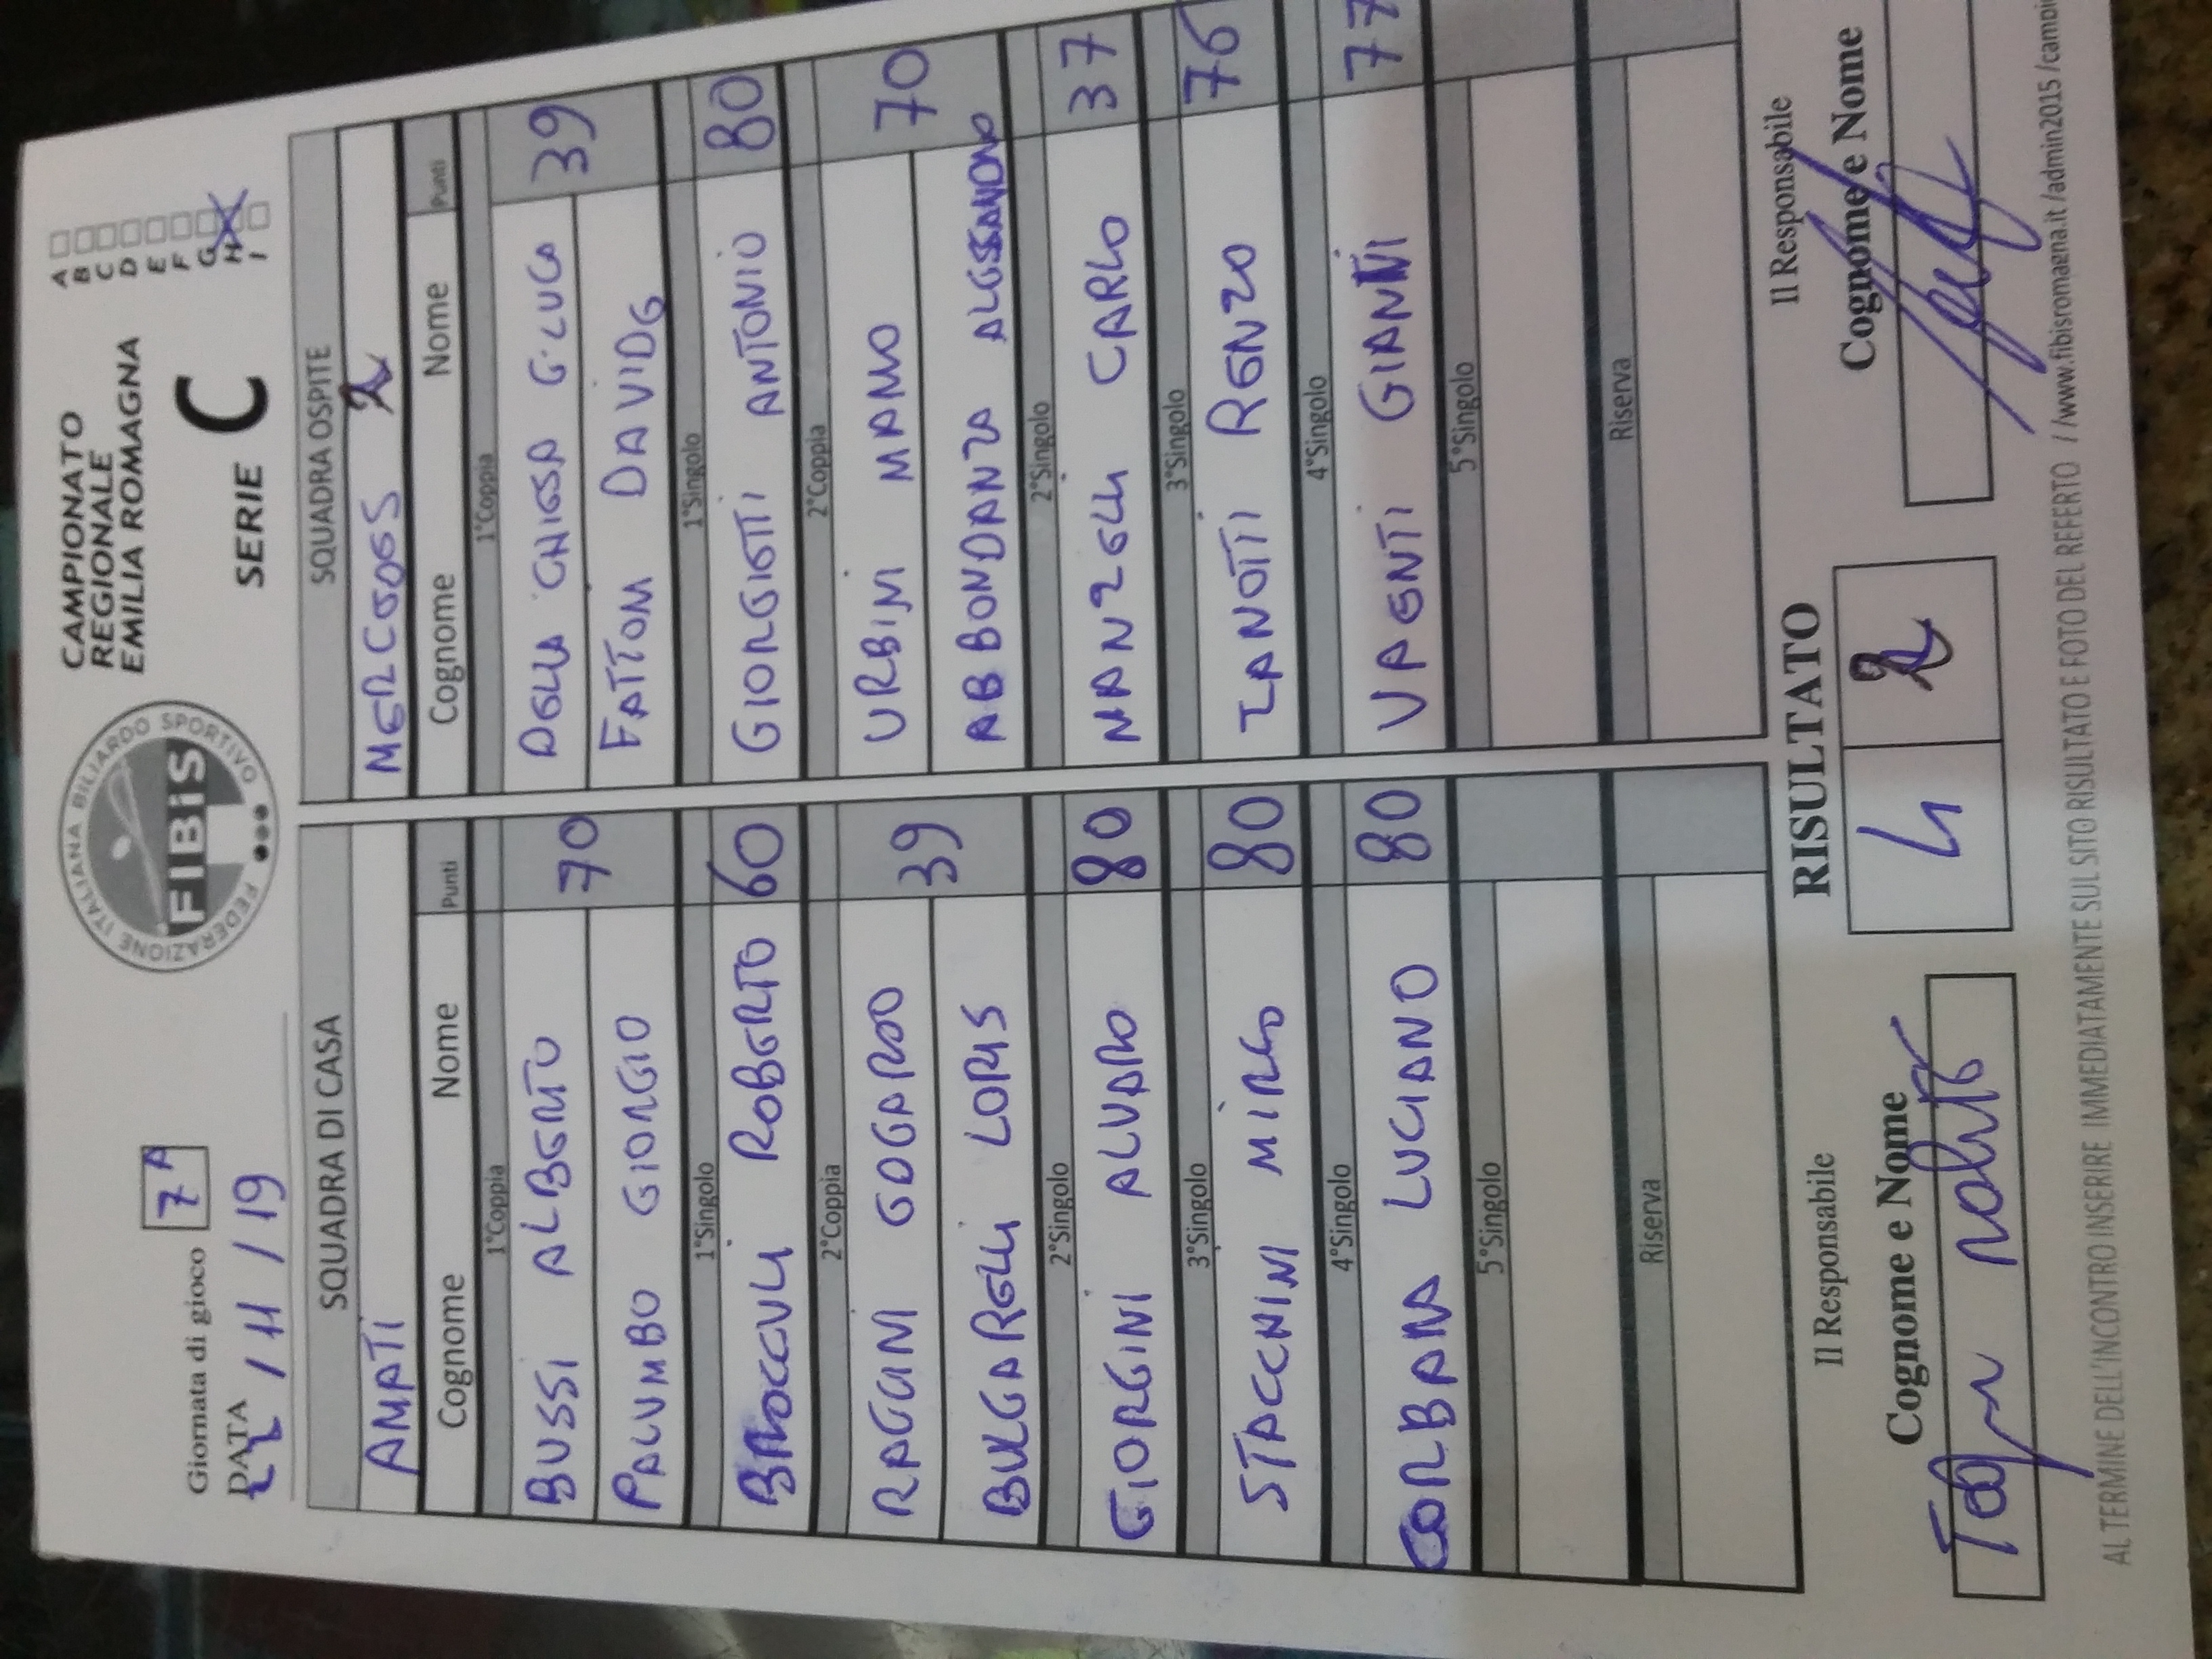 Giornata di gioco 7A
DATA / 11 / 19
FEDERAZIONE ITALIANA BILIARDO SPORTIVO
FIBiS
CAMPIONATO
REGIONALE
EMILIA ROMAGNA
SERIE C
A
B
C
D
E
F
G
H
I
SQUADRA DI CASA
AMATI
Cognome Nome Punti
1°Coppia
BUSSI ALBERTO 70
PALUMBO GIORGIO
1°Singolo
BROCCULI ROBERTO 60
2°Coppia
RAGGINI EDGARDO 39
BULGARELLI LORIS
2°Singolo
GIORGINI ALVARO 80
3°Singolo
STACCHINI MIRCO 80
4°Singolo
CORBARA LUCIANO 80
5°Singolo
Riserva
SQUADRA OSPITE
MERCOOES 2
Cognome Nome Punti
1°Coppia
DELLA CHIESA G.LUCA 39
FATTORI DAVIDE
1°Singolo
GIORGETTI ANTONIO 80
2°Coppia
URBINI MARIO 70
ABBONDANZA ALESSANDRO
2°Singolo
MANZELLI CARLO 37
3°Singolo
ZANOTTI RENZO 76
4°Singolo
VAENTI GIANNI 77
5°Singolo
Riserva
Il Responsabile
Cognome e Nome
RISULTATO
4 2
Il Responsabile
Cognome e Nome
AL TERMINE DELL'INCONTRO INSERIRE IMMEDIATAMENTE SUL SITO RISULTATO E FOTO DEL REFERTO / /www.fibisromagna.it /admin2015